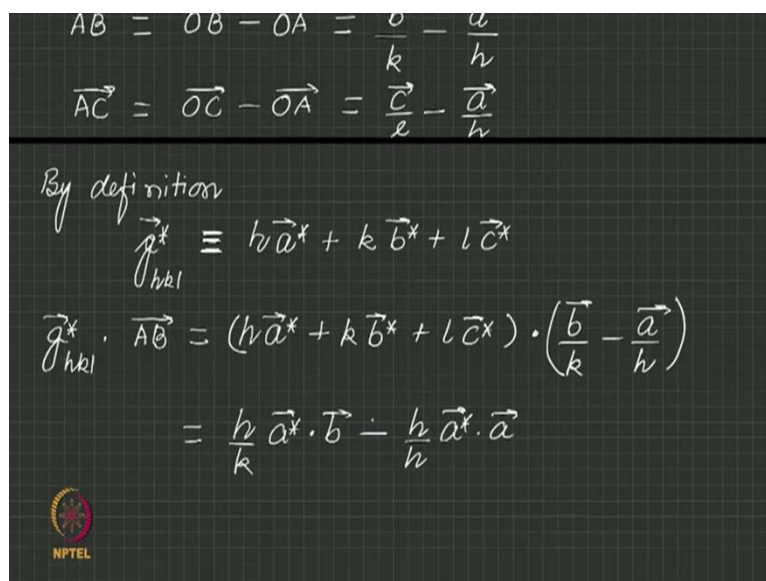 AB = OB − OA = b/k − a/h
\vec{AC} = \vec{OC} − \vec{OA} = \vec{c}/l − \vec{a}/h
By definition
\vec{g}^*_{hkl} ≡ h\vec{a}^* + k\vec{b}^* + l\vec{c}^*
\vec{g}^*_{hkl} · \vec{AB} = (h\vec{a}^* + k\vec{b}^* + l\vec{c}^*) · (\vec{b}/k − \vec{a}/h)
= h/k \vec{a}^* · \vec{b} − h/h \vec{a}^* · \vec{a}
NPTEL